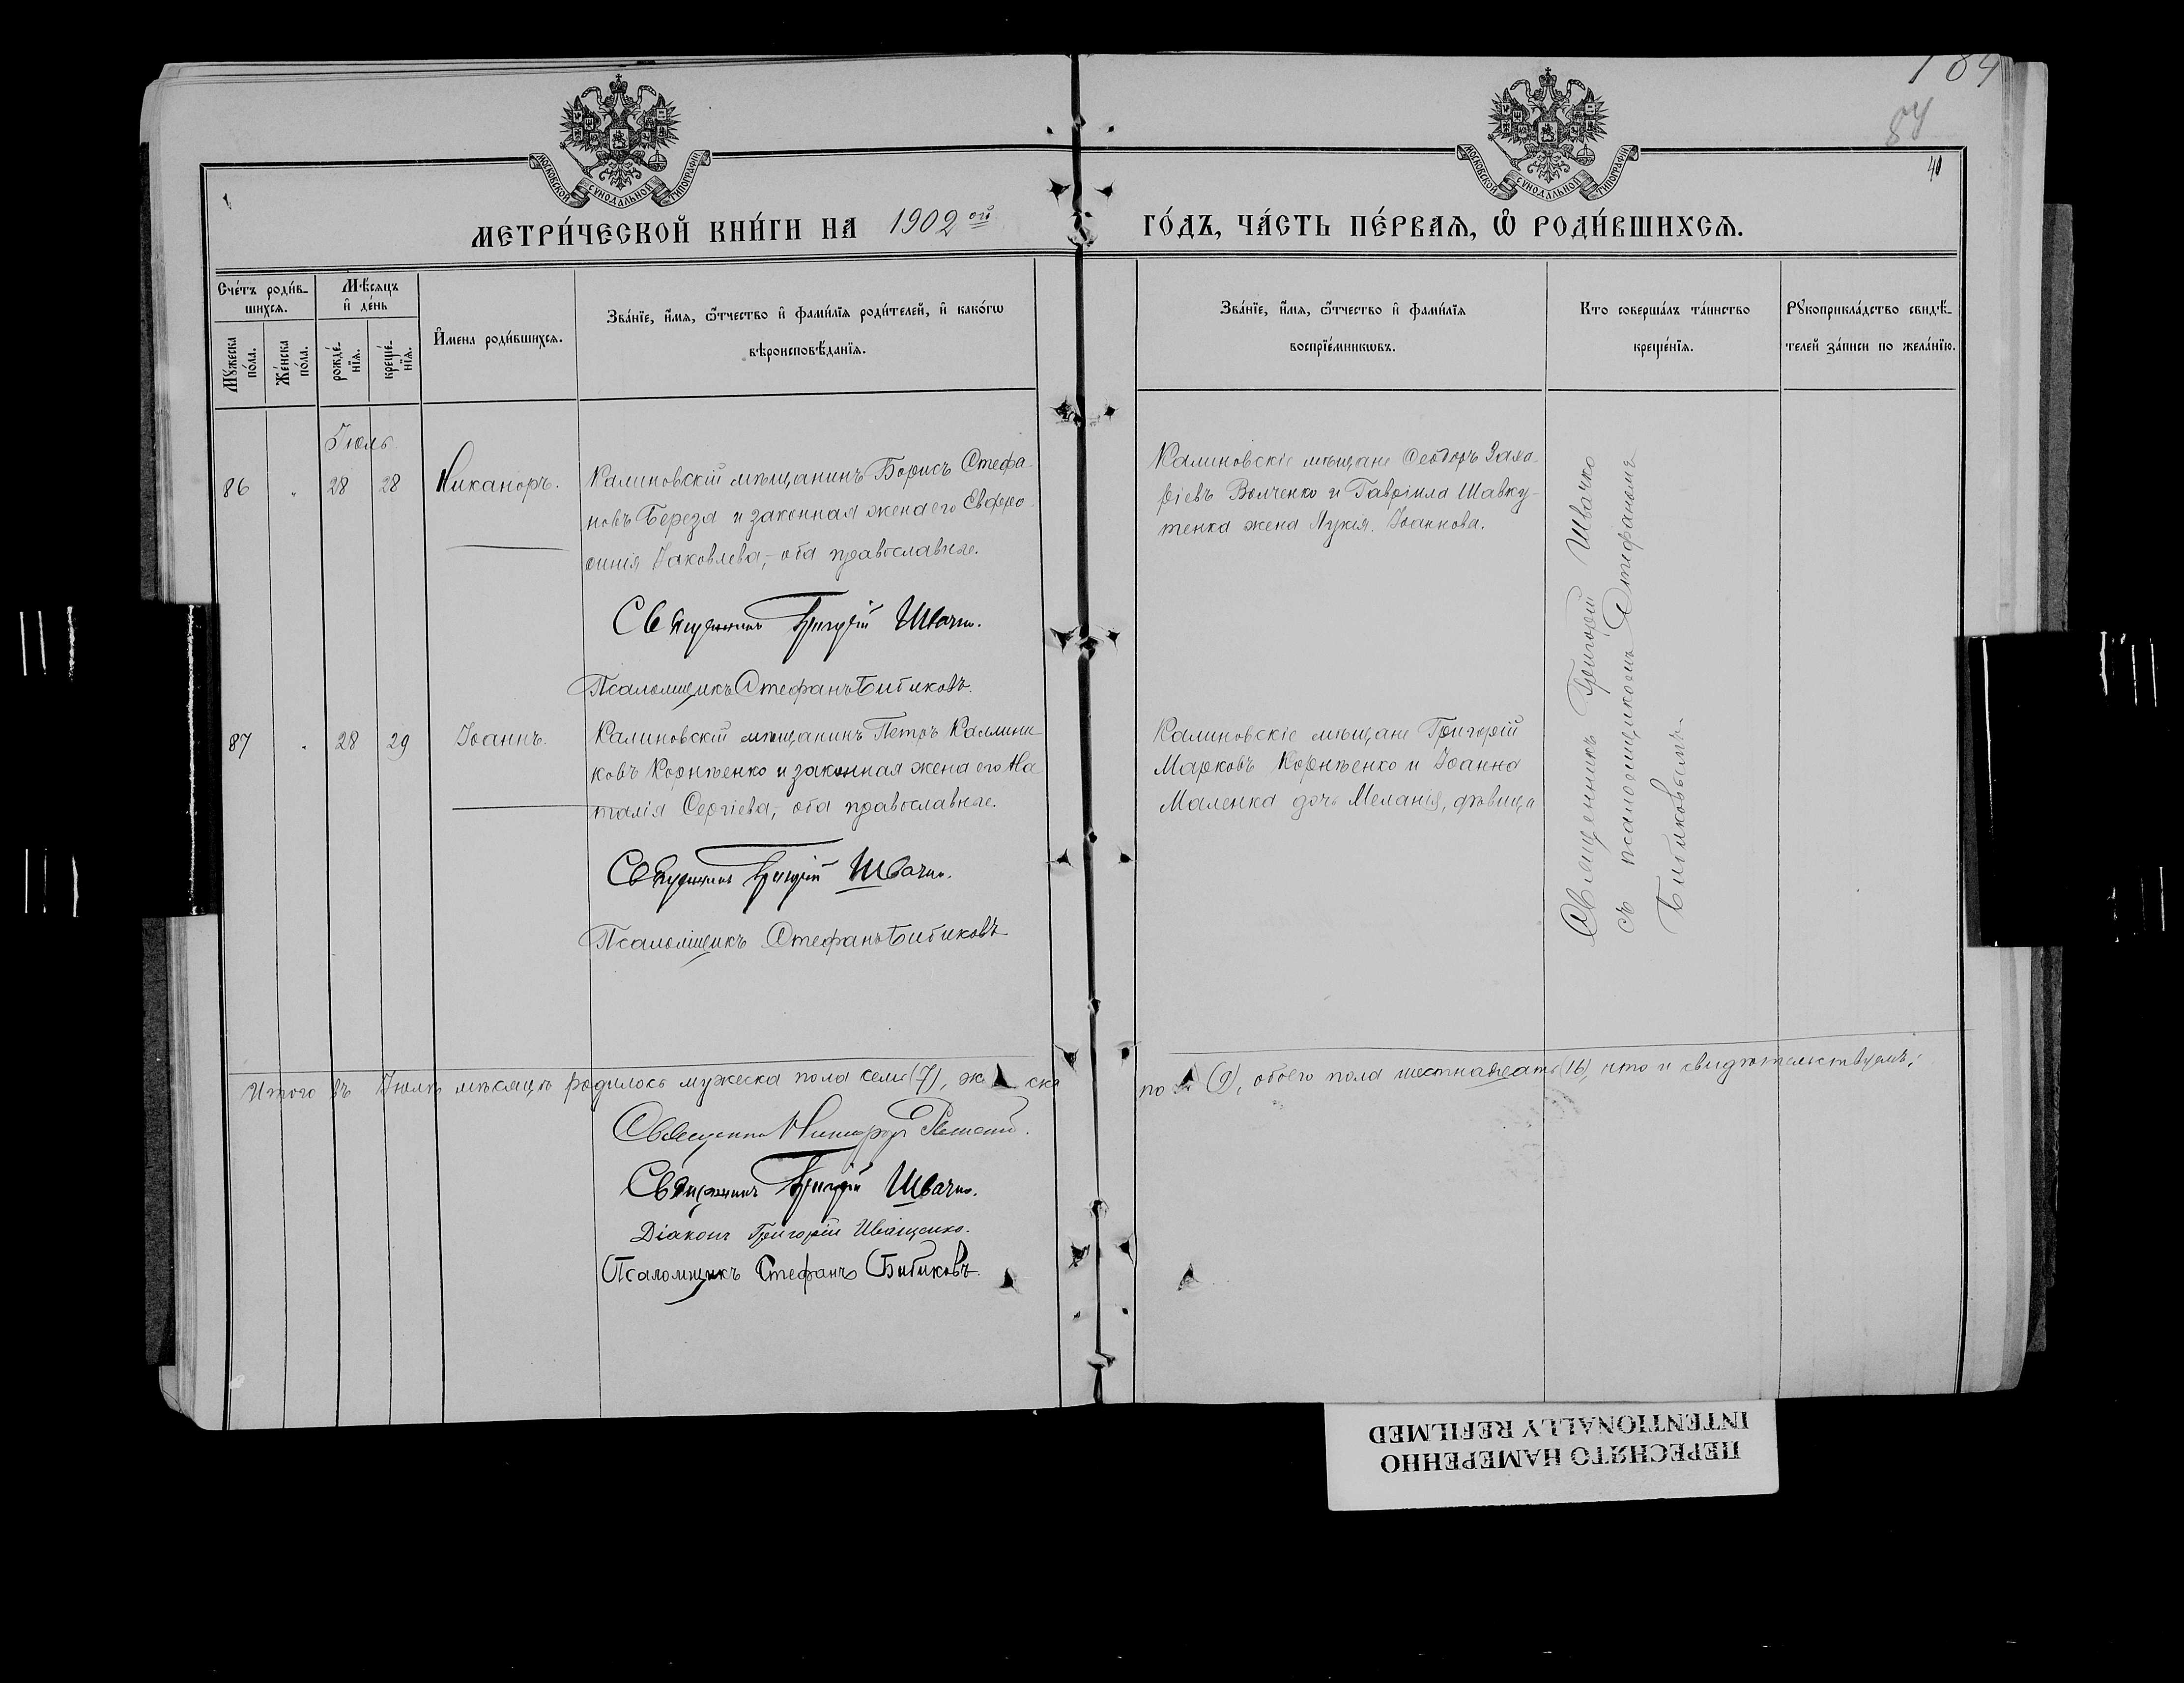 184
84
40
МОСКОВСКОЙ СѴНОДАЛЬНОЙ ТИПОГРАФІИ
МОСКОВСКОЙ СѴНОДАЛЬНОЙ ТИПОГРАФІИ
МЕТРИ́ЧЕСКОЙ КНИ́ГИ НА 1902ой ГО́ДЪ, ЧА́СТЬ ПЕ́РВАѦ, Ѽ РОДИ́ВШИХСѦ.
Сче́тъ роди́в-
шихсѧ.
Мѣ́сѧцъ
и҆ де́нь
Мꙋ́жеска
по́ла.
Же́нска
по́ла.
рожде́-
нїѧ.
креще́-
нїѧ.
И҆мена роди́вшихсѧ.
Зва́нїе, и҆́мѧ, ѻ҆́тчество и҆ фами́лїѧ роди́телей, и҆ како́гѡ
вѣроисповѣ́данїѧ.
Зва́нїе, и҆́мѧ, ѻ҆́тчество и҆ фами́лїѧ
воспрїе́мникѡвъ.
Кто соверша́лъ та́инство
креще́нїѧ.
Рꙋкоприкла́дство свидѣ́-
телей за́писи по жела́нїю.
Іюль
86 " 28 28 Никаноръ.
Калиновскій мѣщанинъ Борисъ Стефа-
новъ Береза и законная жена его Евфро-
синія Іаковлева, оба православные.
Священникъ Григорій Швачко.
Псаломщикъ Стефанъ Бибиковъ.
Калиновскіе мѣщане Ѳеодоръ Заха-
ріевъ Волченко и Гавріила Шавку-
тенка жена Лукія Іоаннова.
87 " 28 29 Іоаннъ.
Калиновскій мѣщанинъ Петръ Каллини-
ковъ Корнѣенко и законная жена его На-
талія Сергіева, оба православные.
Священникъ Григорій Швачко.
Псаломщикъ Стефанъ Бибиковъ
Калиновскіе мѣщане Григорій
Марковъ Корнѣенко и Іоанна
Маленка дочь Меланія, дѣвица
Священникъ Григорій Швачко
съ псаломщикомъ Стефаномъ
Бибиковымъ.
Итого въ Іюлѣ мѣсяцѣ родилось мужеска пола семь (7), же ска по (9), обоего пола шестнадцать (16), что и свидѣтельствуемъ:
Священникъ
Священникъ Григорій Швачко.
Діаконъ Григорій Иващенко.
Псаломщикъ Стефанъ Бибиковъ.
ПЕРЕСНЯТО НАМЕРЕННО
INTENTIONALLY REFILMED